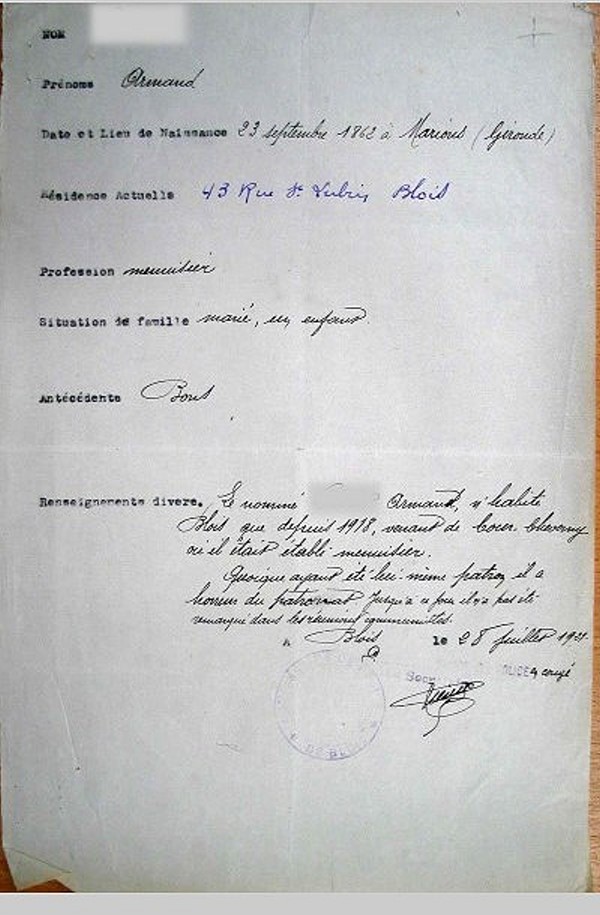 NOM
Prénoms Armand
Date et Lieu de Naissance 23 septembre 1862 à Marions (Gironde)
Résidence Actuelle 43 Rue St Lubin Blois
Profession menuisier
Situation de famille marié, un enfant.
Antécédents Bons
Renseignements divers. Le nommé Armand, n'habite
Blois que depuis 1918, venant de Cour Cheverny
où il était établi menuisier.
Quoique ayant été lui-même patron il a
horreur du patronat Jusqu'à ce jour il n'a pas été
remarqué dans les réunions communistes.
A Blois le 28 juillet 1921
POLICE
DE BLOIS